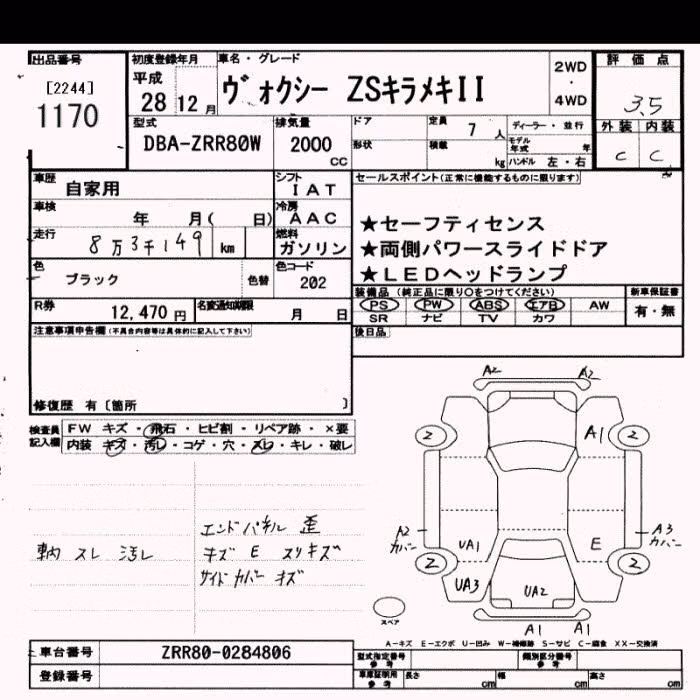 出品番号 初度登録年月 車名・グレード 評価点
[2244] 平成 2WD
1170 28 12月 ヴォクシー ZSキラメキII ・ 3.5
4WD
型式 排気量 ドア 定員 7 人 ディーラー・並行 外装 内装
DBA-ZRR80W 2000 cc 形状 積載 kg モデル年式 年 C C
ハンドル 左・右
車歴 自家用 シフト IAT セールスポイント(正常に機能するものに限ります)
車検 年 月( 日) 冷房 AAC ★セーフティセンス
走行 8万3千149 km 燃料 ガソリン ★両側パワースライドドア
色 ブラック 色替 色コード 202 ★LEDヘッドランプ
装備品(純正品に限り○をつけてください) 新車保証書
R券 12,470円 名変通知期限 月 日 PS PW ABS エアB AW 有・無
SR ナビ TV カワ
注意事項申告欄(不具合内容等は具体的に記入して下さい) 後日品
修復歴 有〔箇所 〕
検査員記入欄 FW キズ・飛石・ヒビ割・リペア跡・×要
内装 キズ・汚レ・コゲ・穴・スレ・キレ・破レ
A2 A2
2 A1 2
A2 カバー UA1 E A3 カバー
2 2
UA3 UA2
A1 A1
スペア
車内 スレ 汚レ
エンドパネル 歪
キズ E スリキズ
サイドカバー キズ
A-キズ E-エクボ U-凹み W-補修跡 S-サビ C-腐食 XX-交換済
車台番号 ZRR80-0284806 型式指定番号 参考 類別区分番号 参考
登録番号 車庫証明用 参考 長さ cm 幅 cm 高さ cm